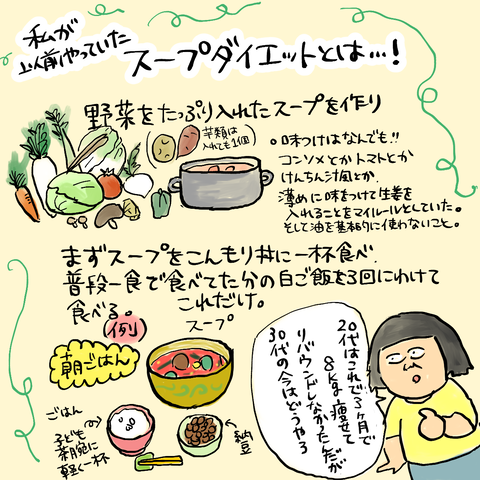 私が
以前やっていた
スープダイエットとは…!
野菜をたっぷり入れたスープを作り
芋類は
入れても1個
。味つけはなんでも!!
コンソメとかトマトとか
けんちん汁風とか、
薄めに味をつけて生姜を
入れることをマイルールとしていた。
そして油を基本的に使わないこと。
まずスープをこんもり丼に一杯食べ、
普段一食で食べてた分の白ご飯を3回にわけて
食べる。これだけ。
例
スープ
朝ごはん
ごはん
子ども
茶碗に
軽く一杯
納豆
20代はこれで3ヶ月で
8kg痩せて
リバウンドしなかったんだが
30代の今はどうやろ